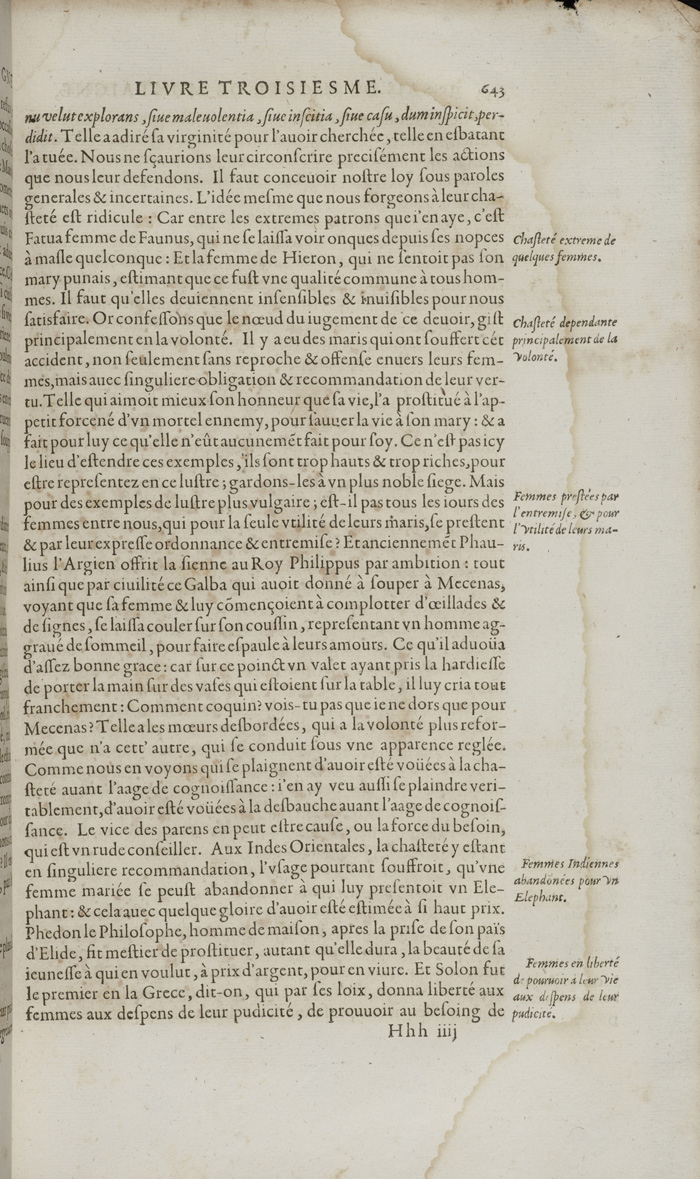 LIVRE TROISIESME. 643
nu velut explorans, siue maleuolentia, siue inscitia, siue casu, dum inspicit, per-
didit. Telle a adiré sa virginité pour l'auoir cherchée, telle en esbatant
l'a tuée. Nous ne sçaurions leur circonscrire precisément les actions
que nous leur defendons. Il faut conceuoir nostre loy sous paroles
generales & incertaines. L'idée mesme que nous forgeons à leur cha-
steté est ridicule : Car entre les extremes patrons que i'en aye, c'est
Fatua femme de Faunus, qui ne se laissa voir onques depuis ses nopces
à masle quelconque : Et la femme de Hieron, qui ne sentoit pas son
mary punais, estimant que ce fust vne qualité commune à tous hom-
mes. Il faut qu'elles deuiennent insensibles & inuisibles pour nous
satisfaire. Or confessons que le nœud du iugement de ce deuoir, gist
principalement en la volonté. Il y a eu des maris qui ont souffert cét
accident, non seulement sans reproche & offense enuers leurs fem-
mes, mais auec singuliere obligation & recommandation de leur ver-
tu. Telle qui aimoit mieux son honneur que sa vie, l'a prostitué à l'ap-
petit forcené d'vn mortel ennemy, pour sauuer la vie à son mary : & a
fait pour luy ce qu'elle n'eût aucunemét fait pour soy. Ce n'est pas icy
le lieu d'estendre ces exemples, ils sont trop hauts & trop riches, pour
estre representez en ce lustre ; gardons-les à vn plus noble siege. Mais
pour des exemples de lustre plus vulgaire ; est-il pas tous les iours des
femmes entre nous, qui pour la seule vtilité de leurs maris, se prestent
& par leur expresse ordonnance & entremise ? Et anciennemét Phau-
lius l'Argien offrit la sienne au Roy Philippus par ambition : tout
ainsi que par ciuilité ce Galba qui auoit donné à souper à Mecenas,
voyant que sa femme & luy cõmençoient à complotter d'œillades &
de signes, se laissa couler sur son coussin, representant vn homme ag-
graué de sommeil, pour faire espaule à leurs amours. Ce qu'il aduoüa
d'assez bonne grace : car sur ce poinct vn valet ayant pris la hardiesse
de porter la main sur des vases qui estoient sur la table, il luy cria tout
franchement : Comment coquin ? vois-tu pas que ie ne dors que pour
Mecenas ? Telle a les mœurs desbordées, qui a la volonté plus refor-
mée que n'a cett' autre, qui se conduit sous vne apparence reglée.
Comme nous en voyons qui se plaignent d'auoir esté voüées à la cha-
steté auant l'aage de cognoissance : i'en ay veu aussi se plaindre veri-
tablement, d'auoir esté voüées à la desbauche auant l'aage de cognois-
sance. Le vice des parens en peut estre cause, ou la force du besoin,
qui est vn rude conseiller. Aux Indes Orientales, la chasteté y estant
en singuliere recommandation, l'vsage pourtant souffroit, qu'vne
femme mariée se peust abandonner à qui luy presentoit vn Ele-
phant : & cela auec quelque gloire d'auoir esté estimée à si haut prix.
Phedon le Philosophe, homme de maison, apres la prise de son païs
d'Elide, fit mestier de prostituer, autant qu'elle dura, la beauté de sa
ieunesse à qui en voulut, à prix d'argent, pour en viure. Et Solon fut
le premier en la Grece, dit-on, qui par ses loix, donna liberté aux
femmes aux despens de leur pudicité, de prouuoir au besoing de
Hhh iiij
Chasteté extreme de
quelques femmes.
Chasteté dependante
principalement de la
volonté.
Femmes prestées par
l'entremise, & pour
l'vtilité de leurs ma-
ris.
Femmes Indiennes
abandonées pour vn
Elephant.
Femmes en liberté
de pouruoir à leur vie
aux despens de leur
pudicité.